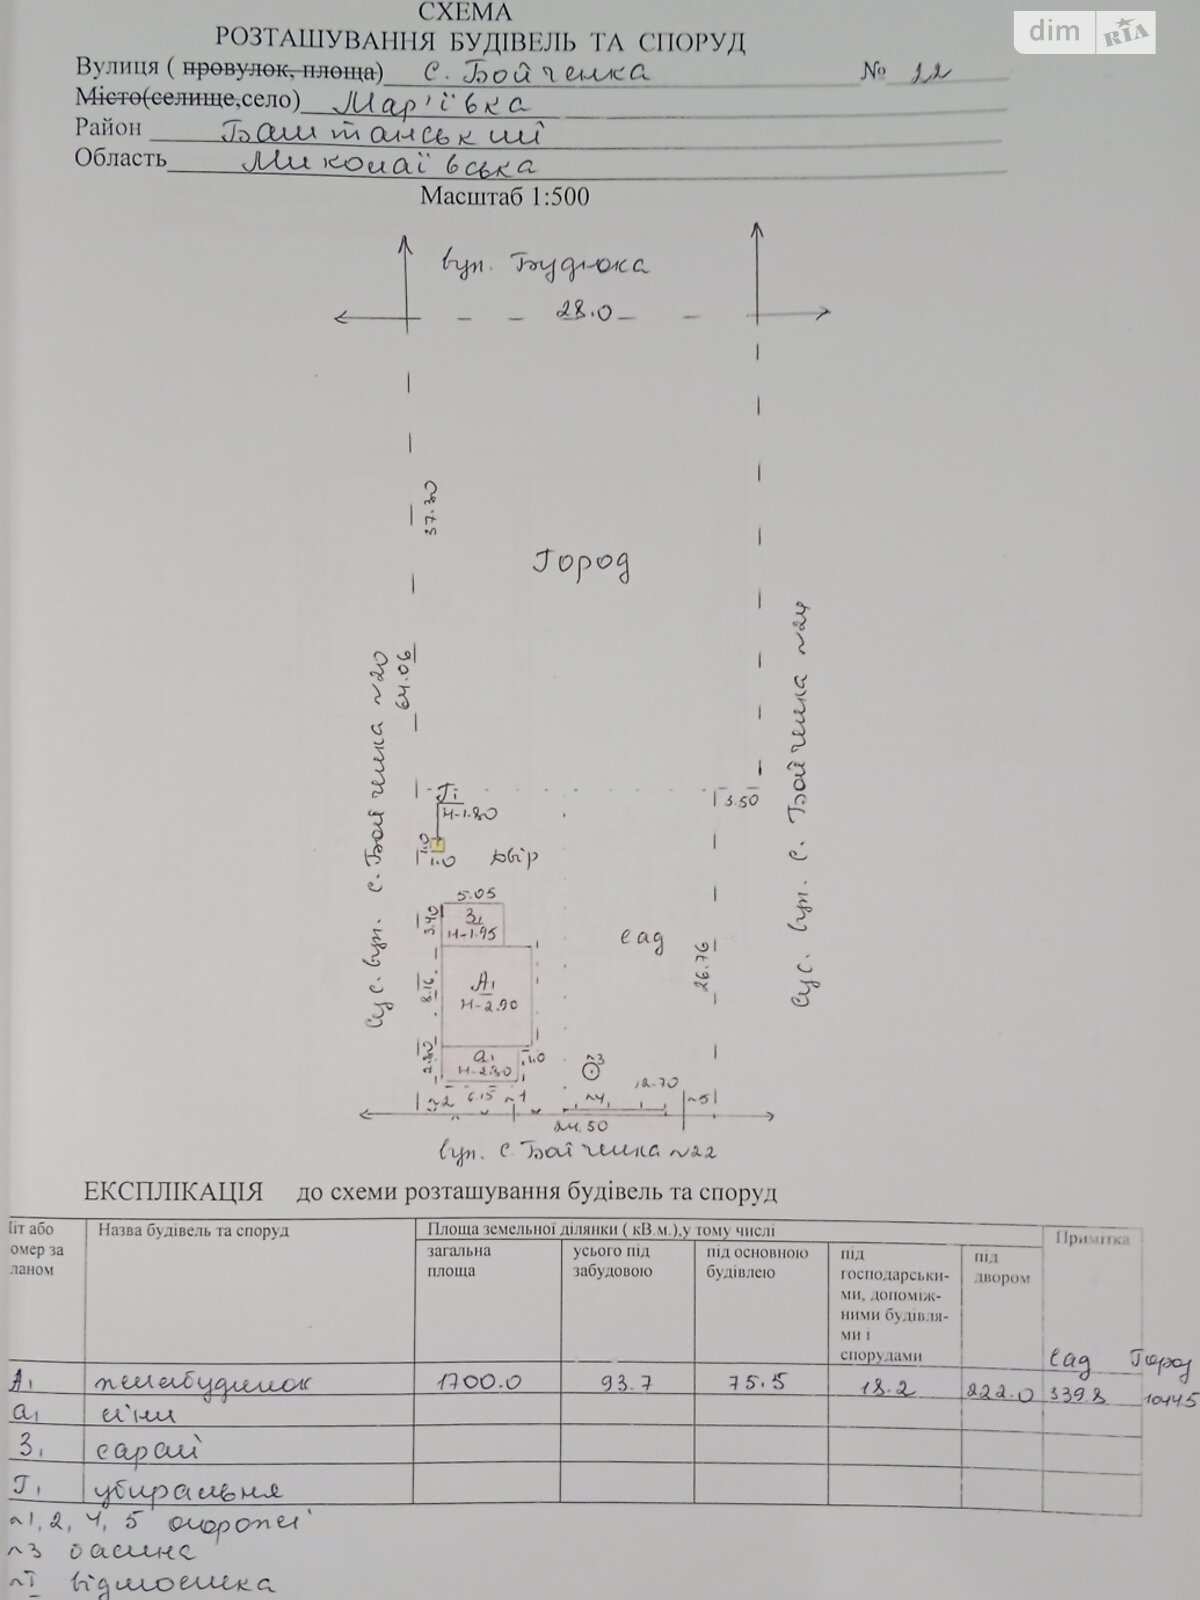 СХЕМА
РОЗТАШУВАННЯ БУДІВЕЛЬ ТА СПОРУД
dim RIA
Вулиця ( провулок, площа) С. Бойченка № 22
Місто(селище,село) Мар'ївка
Район Баштанський
Область Миколаївська
Масштаб 1:500
вул. Будьока
28.0
37.30
Город
64.06
Сус. вул. С. Бойченка №20
Сус. вул. С. Бойченка №24
Г₁
Н-1.80
3.50
1.0
1.0
двір
5.05
3.40
З₁
Н-1.95
сад
26.76
8.16
А₁
Н-2.90
2.80
а₁
Н-2.30
1.0
№3
12.70
№2 6.15 №1 №4 №5
24.50
вул. С. Бойченка №22
ЕКСПЛІКАЦІЯ до схеми розташування будівель та споруд
літ або
омер за
ланом
Назва будівель та споруд
Площа земельної ділянки ( кВ.м.),у тому числі
Примітка
загальна
площа
усього під
забудовою
під основною
будівлею
під
господарськи-
ми, допоміж-
ними будівля-
ми і
спорудами
під
двором
Сад Город
А₁ житлбудинок 1700.0 93.7 75.5 18.2 222.0 339.8 1044.5
а₁ сіни
З₁ сарай
Г₁ убиральня
№1, 2, 4, 5 огорожі
№3 басина
№I відмостка